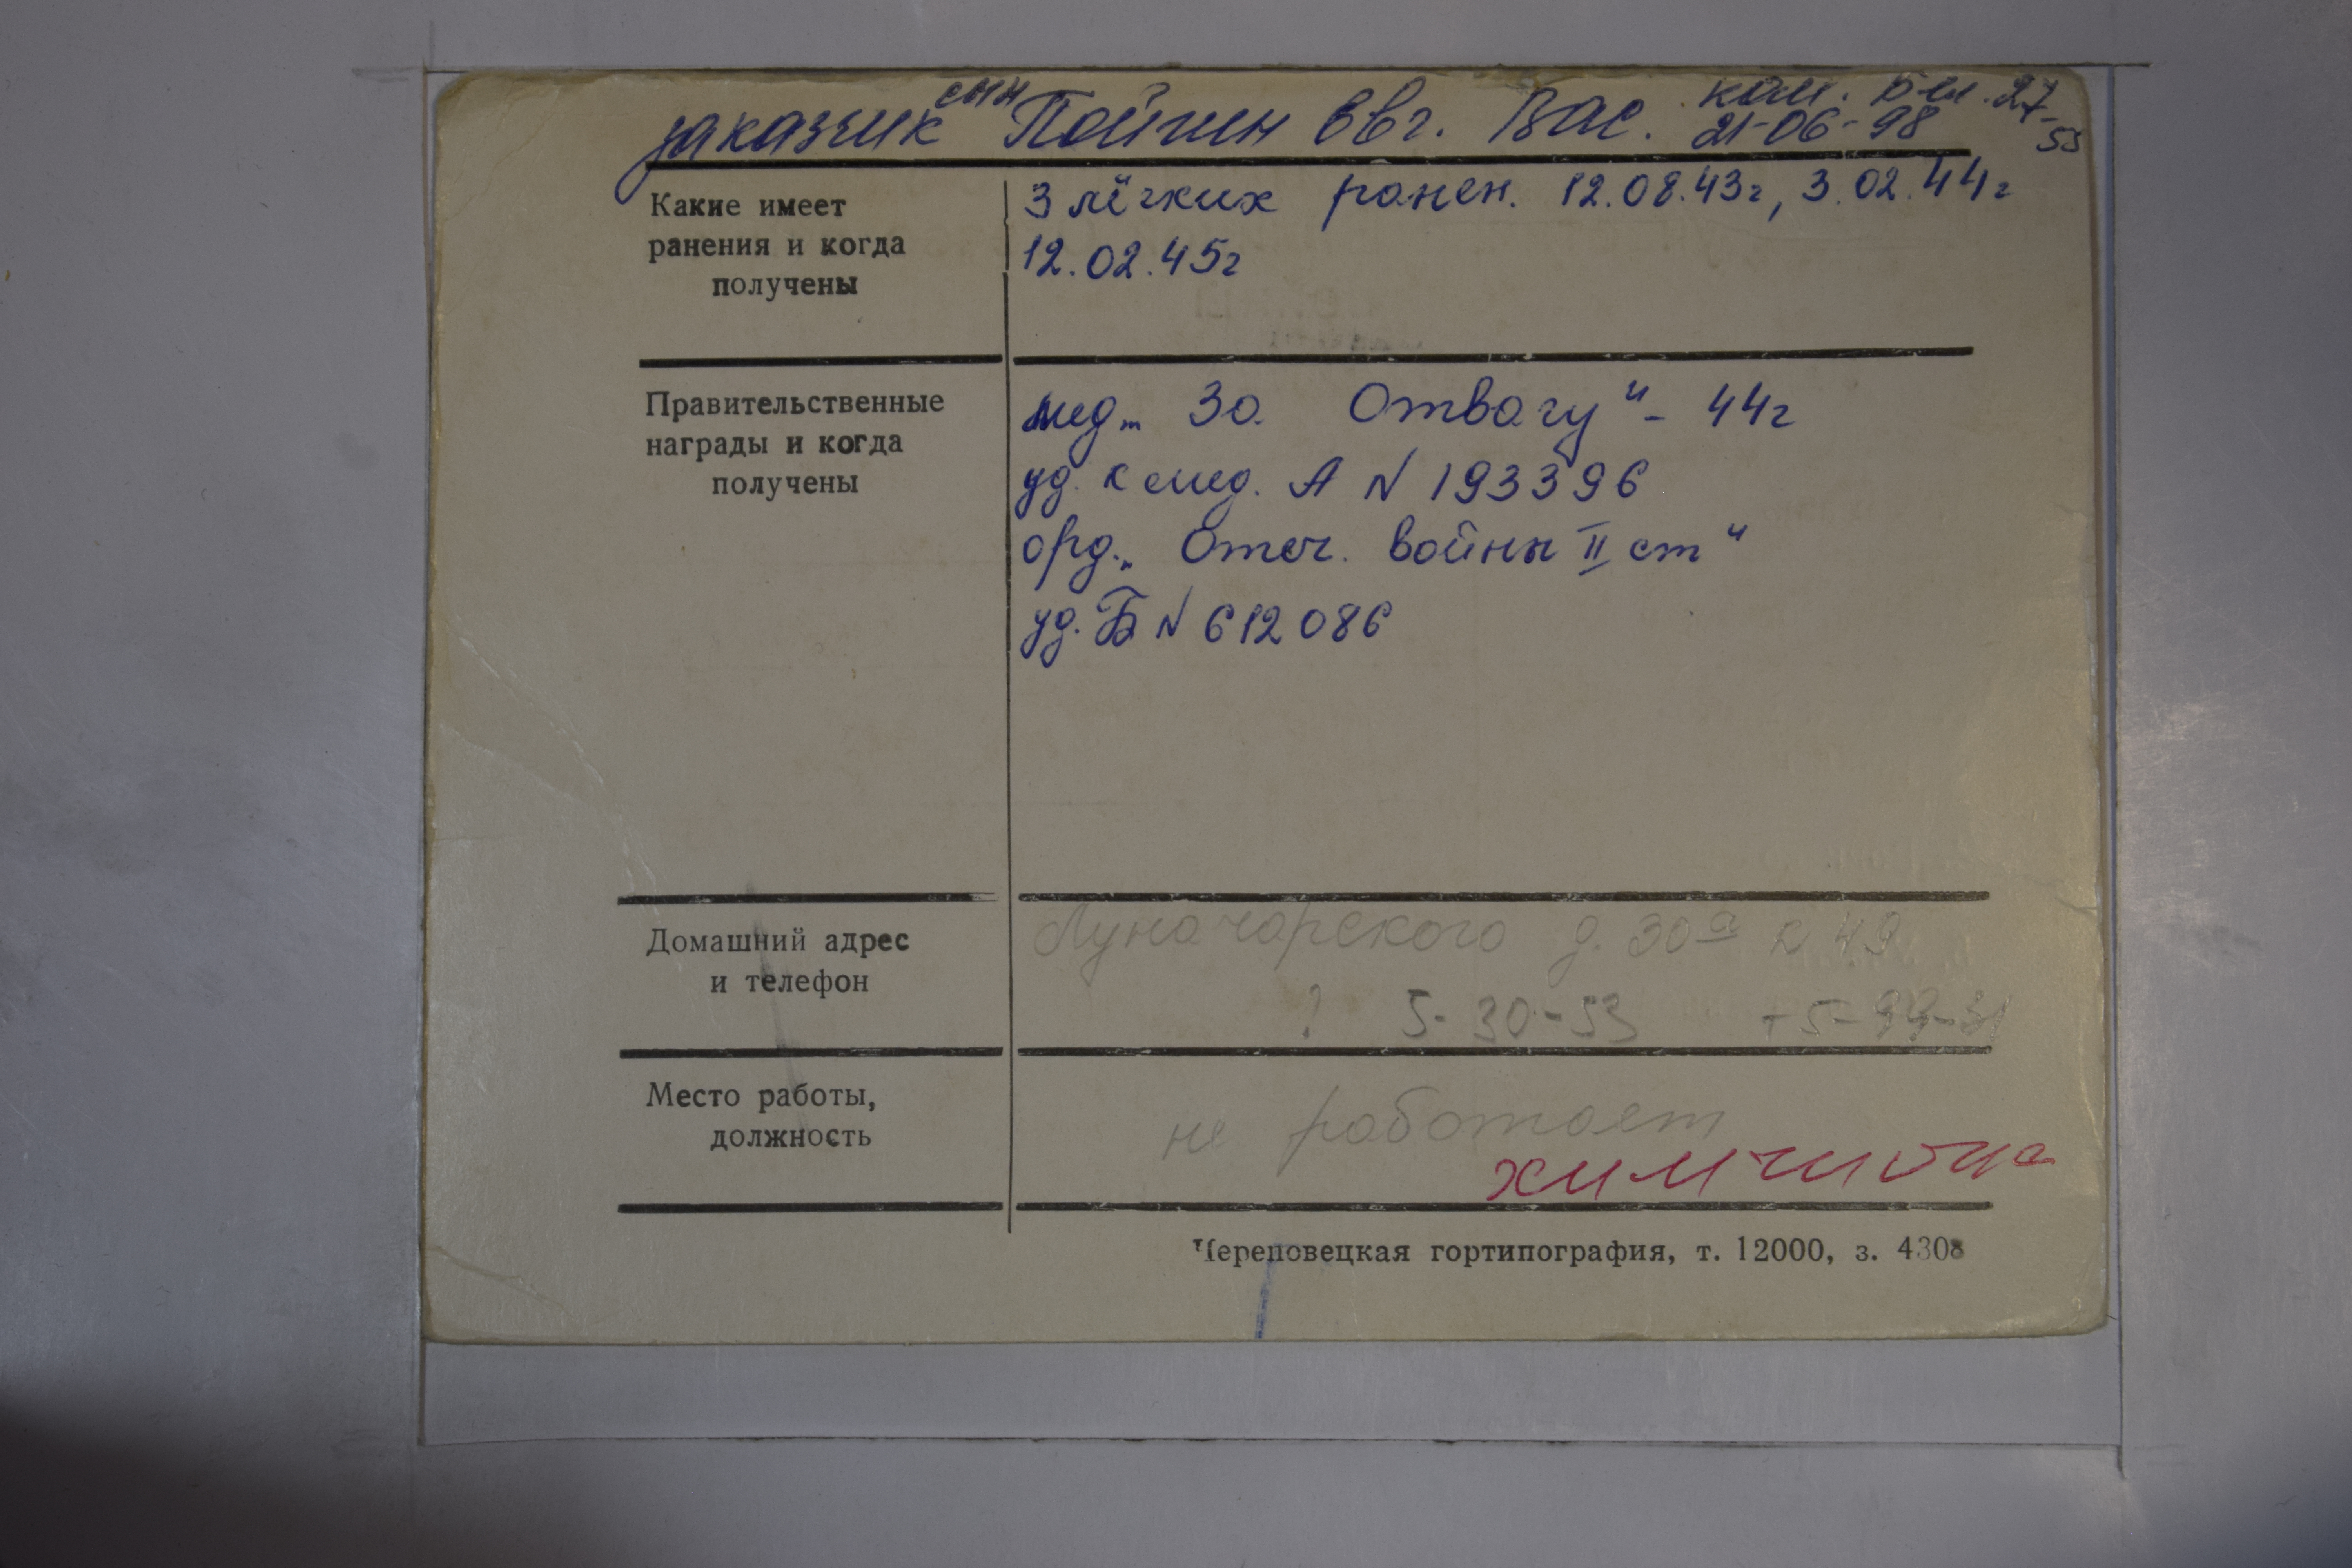 заказчик сын Пойгин Евг. Вас. 21-06-98 27-53
Какие имеет ранения и когда получены
3 лёгких ранен. 12.08.43г, 3.02.44г
12.02.45г
Правительственные награды и когда получены
мед „За Отвагу“ - 44г
уд. к мед. А N 193396
орд. „Отеч. войны II ст“
уд. Б N 612086
Домашний адрес и телефон
Луначарского д. 30а к 49
? 5-30-53
Место работы, должность
не работает
химчистка
Череповецкая гортипография, т. 12000, з. 4308